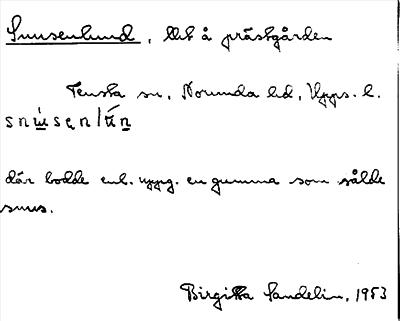 Snusenlund, tllt å prästgården
Tensta sn, Norunda hd, Upps. l.
snu̱̍sęnlún̠
där bodde enl. uppg. en gumma som sålde
snus.
Birgitta Sandelin, 1953